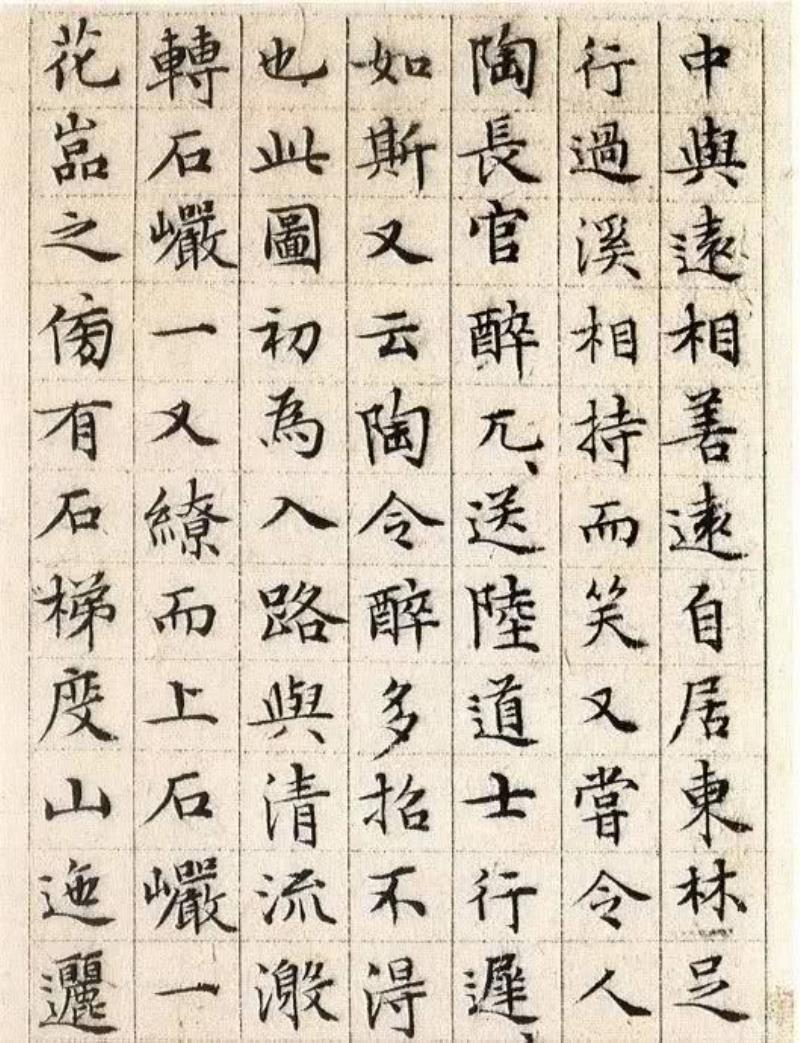 中與遠相善遠自居東林足
行過溪相持而笑又嘗令人
陶長官醉兀、送陸道士行遲、
如斯又云陶令醉多招不得
也此圖初為入路與清流激
轉石巗一又繚而上石巗一
花嵒之傍有石梯度山迤邐